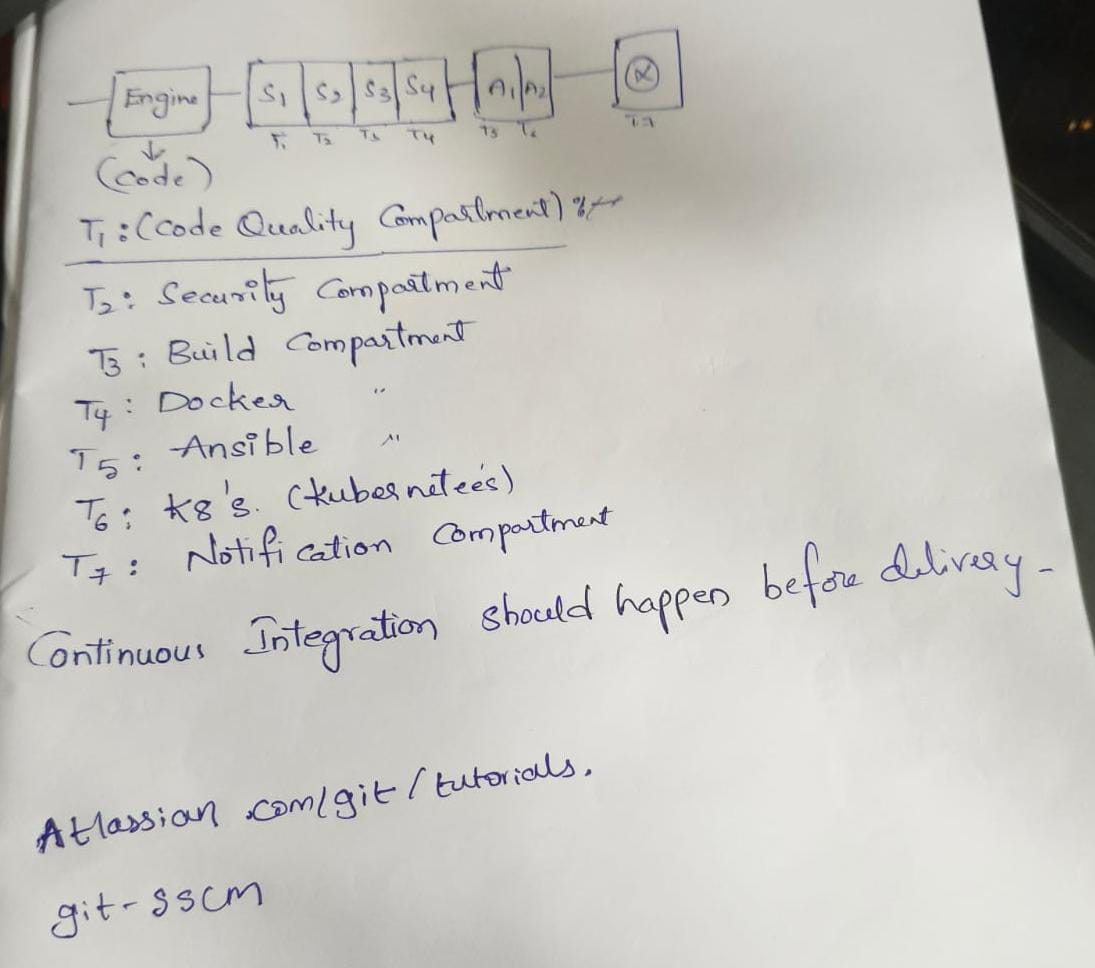 Engine S1 S2 S3 S4 A1 A2
T1 T2 T3 T4 T5 T6 T7
(Code)
T1 : (Code Quality Compartment)
T2 : Security Compartment
T3 : Build Compartment
T4 : Docker "
T5 : Ansible "
T6 : K8's. (Kubernetees)
T7 : Notification Compartment
Continuous Integration should happen before delivery -
Atlassian .com/git/tutorials.
git-sscm